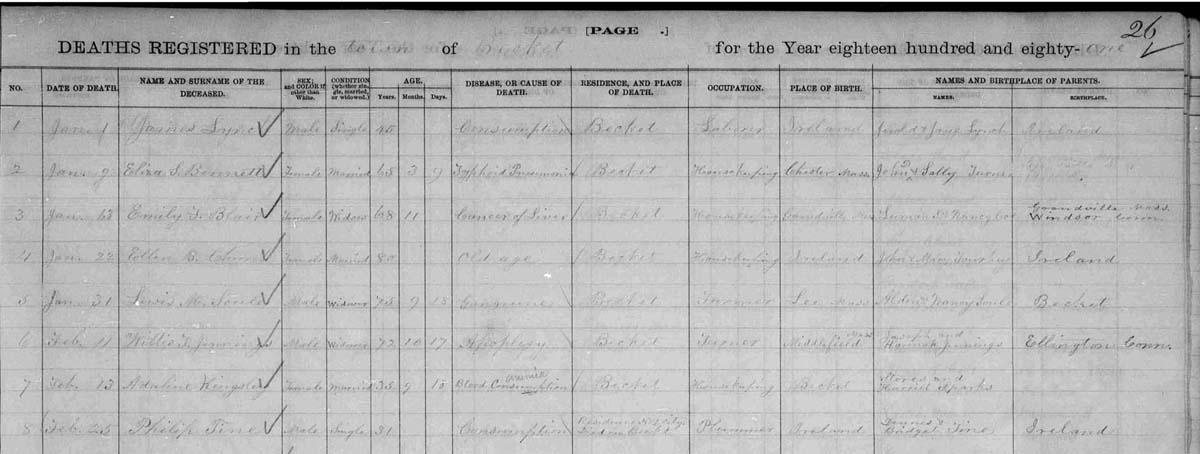 [PAGE .] 26
DEATHS REGISTERED in the town of Becket for the Year eighteen hundred and eighty-one
NO. DATE OF DEATH. NAME AND SURNAME OF THE DECEASED. SEX; and COLOR if other than White. CONDITION (whether single, married, or widowed.) AGE. Years. Months. Days. DISEASE, OR CAUSE OF DEATH. RESIDENCE, AND PLACE OF DEATH. OCCUPATION. PLACE OF BIRTH. NAMES AND BIRTHPLACE OF PARENTS. NAMES. BIRTHPLACE.
1 Jan. 1 James Lynch Male Single Consumption Becket Laborer Ireland Lynch Ireland
2 Jan. 9 Eliza S. Bennett Female Married 65 3 9 Typhoid Pneumonia Becket Housekeeping Chester Mass. John & Sally Turner
3 Jan. 13 Emily Blair Female Widow 68 11 Cancer of Liver Becket Housekeeping Granville Mass. Windsor Conn.
4 Jan. 22 Ellen B. Female Married 80 Old age Becket Housekeeping Ireland John & Mary Ireland
5 Jan. 31 Lewis M. Soule Male Widower 75 9 13 Gangrene Becket Farmer Lee Mass Nancy Soule Becket
6 Feb. 11 Willis Jennings Male Widower 72 10 17 Apoplexy Becket Farmer Middlefield Mass Joseph and Hannah Jennings Ellington Conn.
7 Feb. 13 Adaline Kingsley Female Married 35 9 18 Blood Consumption Becket Housekeeping Becket and Harriet Sparks
8 Feb. 25 Philip Tine Male Single 31 Consumption Residence N.Y. City Died in Becket Plummer Ireland Bridget Tine Ireland